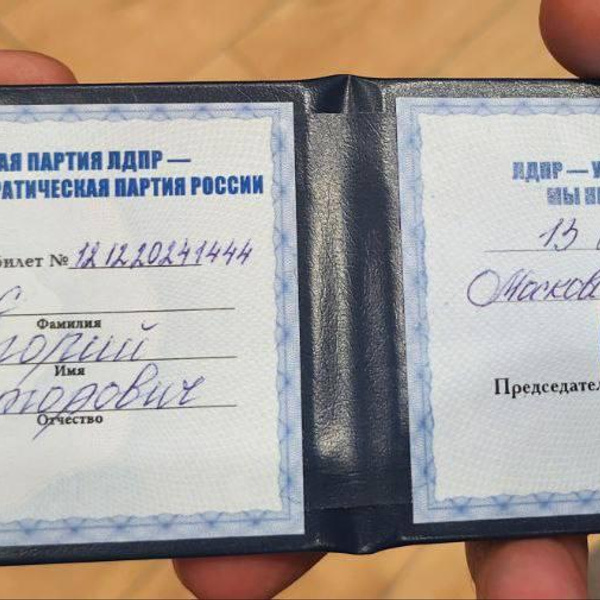 АЯ ПАРТИЯ ЛДПР —
РАТИЧЕСКАЯ ПАРТИЯ РОССИИ
билет № 121220241444
Фамилия
горий
Имя
торович
Отчество
ЛДПР — У
МЫ
13
Москов
Председател